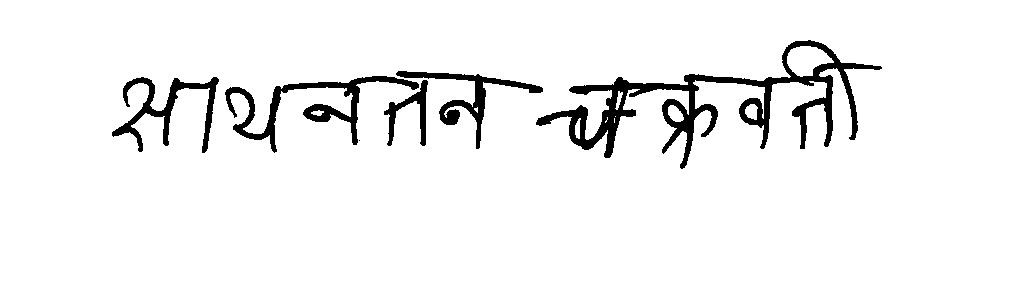 साथनतन चक्रवती